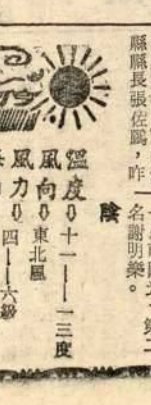 縣縣長張佐鵬，昨
名謝明樂。
陰
溫度⇩十一——一三度
風向⇩東北風
風力⇩四——六級